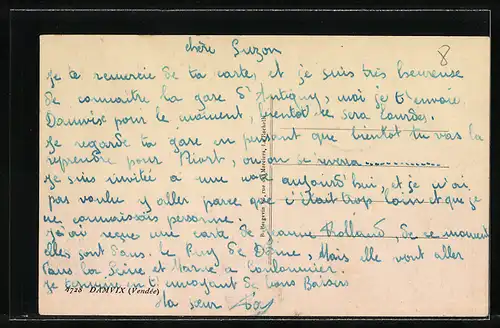 chère Suzon
8
Je te remercie de ta carte, et je suis très heureuse
de connaitre la gare d'Antigny, moi je t'envoie
Damvix pour le moment, bientot ce sera Lourdes.
Je regarde ta gare en pensant que bientot tu vas la
reprendre pour Niort, ou on se verra ..............
Je suis invitée a une noce aujourd'hui et je n'ai
pas voulu y aller parce que c'était trop loin et que je
ne connaissais personne.
J'ai reçue une carte de Jeanne Rolland, de ce moment
elles sont dans le Puy de Dome, Mais elle vont aller
dans la Seine et Marne a Coulommier.
Je termine en t'envoyant de bons Baisers
Ta sœur
4728 DAMVIX (Vendée)